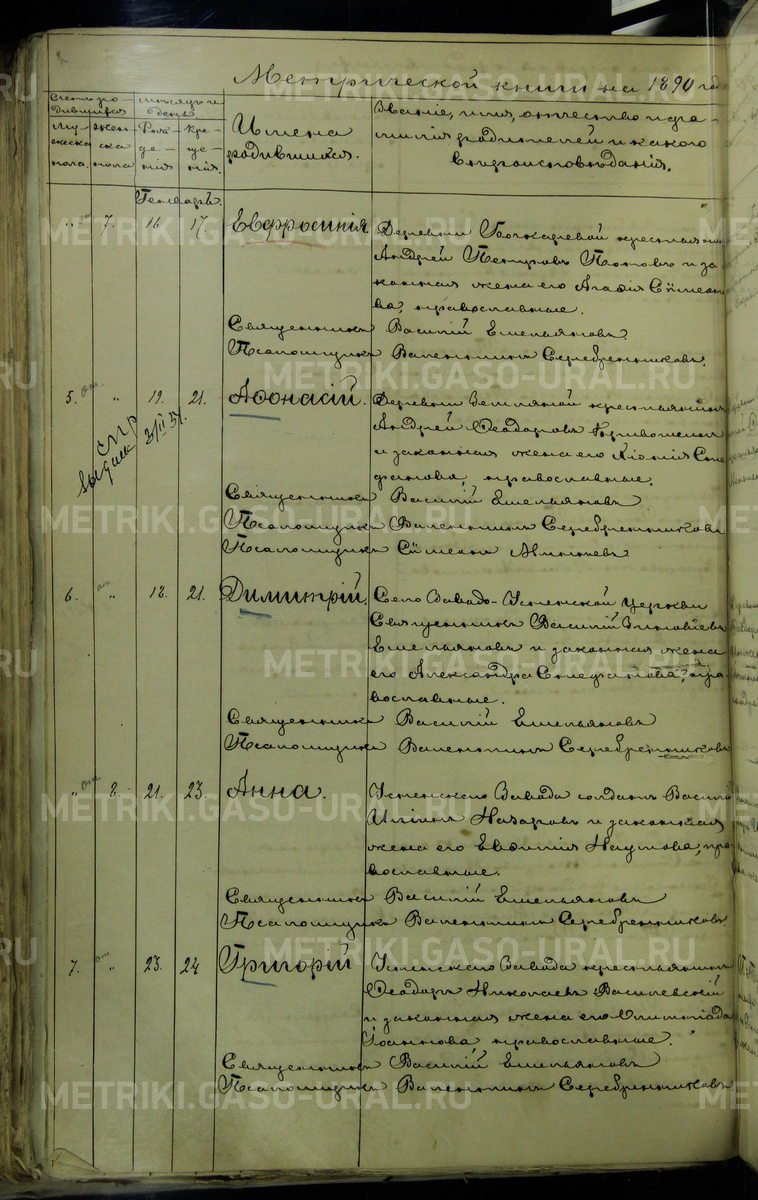 Метрической книги на 1890 годъ
Счетъ ро-
дившихся
Мѣсяцъ и
день.
Му-
жеска
пола.
Жен-
ска
пола
Рож-
де-
нія
Кре-
ще-
нія.
Имена
родившихся.
Званіе, имя, отчество и фа-
милія родителей и какого
вѣроисповѣданія.
Генварь.
" 7. 16 17. Евфросинія. Деревни Бочкаревой крестьянинъ
Андрей Петровъ Поповъ и за
конная жена его Агафія Сѵмеоно
ва, православные.
Священникъ Василій Емельяновъ
Псаломщикъ Валентинъ Серебренниковъ.
5. " 19. 21. Аѳонасій. Деревни Земляной крестьянинъ
Андрей Ѳеодоровъ
и законная жена его Хіонія Сте
фанова, православные.
выдана
спр
3/III 37.
Священникъ Василій Емельяновъ
Псаломщикъ Валентинъ Серебренниковъ
Псаломщикъ Сѵмеонъ
6. " 18. 21. Димитрій. Село Заводо-Успенской церкви
Священникъ Василій Зиновіевъ
Емельяновъ и законная жена
его Александра Стефанова, пра
вославные.
Священникъ Василій Емельяновъ
Псаломщикъ Валентинъ Серебренниковъ
" 8. 21. 23. Анна. Успенскаго Завода солдатъ Василій
Илiинъ Назаровъ и законная
жена его Евфимія Наумова, пра
вославные.
Священникъ Василій Емельяновъ
Псаломщикъ Валентинъ Серебренниковъ.
7. " 23. 24 Григорій Успенскаго Завода крестьянинъ
Ѳеодоръ Николаевъ Василевскій
и законная жена его Олимпіада
Іоаннова, православные.
Священникъ Василій Емельяновъ
Псаломщикъ Валентинъ Серебренниковъ
METRIKI.GASO-URAL.RU